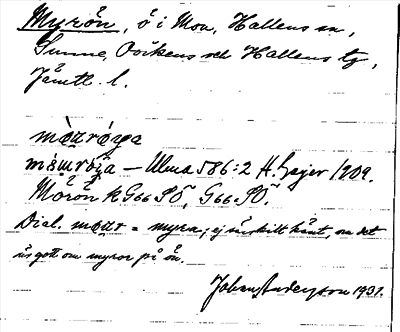 Myrön, ö i Mon, Hallens sn,
Sunne, Ovikens och Hallens tg,
Jämtl. l.
mɑ̀urøyɑ
mǿurøyɑ – Ulma 586:2 H. Geijer 1909.
Mörön kG66SÖ, G66SÖ.
Dial. mour = myra; ej särskilt känt, om det
är gott om myror på ön.
Johan Anderson 1931.